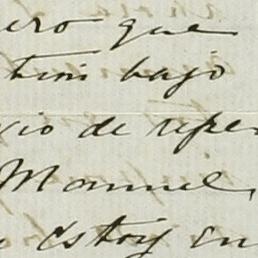 ero que
tini bajo
cio de repe
Manuel,
estoy en